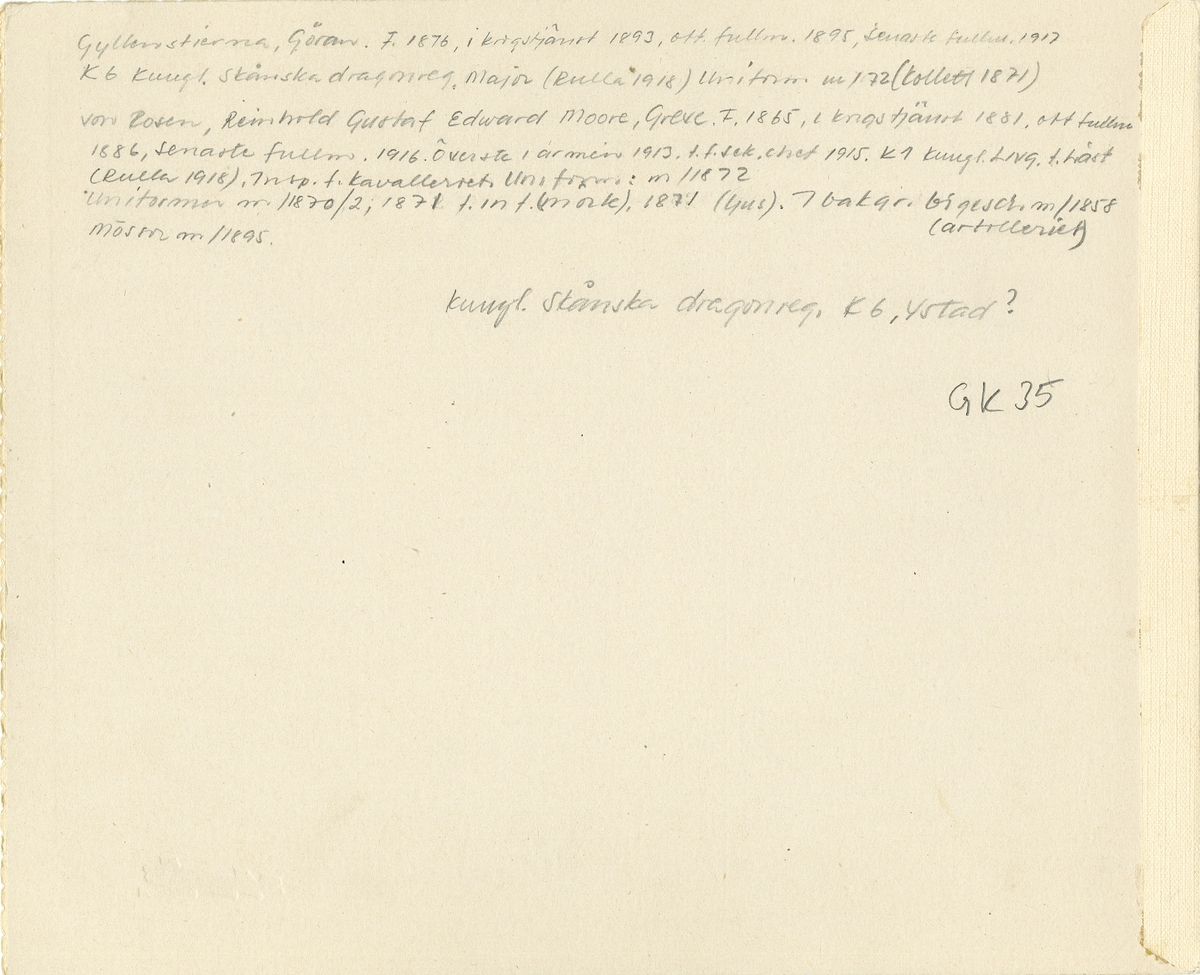 Gyllenstierna, Göran. F. 1876, i krigstjänst 1893, off. fullm. 1895, senaste fullm. 1917
K 6 Kungl. Skånska dragonreg. Major (Rulla 1918) Uniform m/1872 (kollett 1871)
von Rosen, Reinhold Gustaf Edward Moore, Greve. F. 1865, i krigstjänst 1881, off fullm
1886, senaste fullm. 1916. Överste i armén 1913. t.f. sek. chef 1915. K1 Kungl. Livg. t. häst
(Rulla 1918), Insp. f. Kavalleriet. Uniform: m/1872
Uniformer m/1870/2, 1871 f. inf. (mörk), 1871 (ljus). I bakgr. bigesch. m/1858
(artilleriet)
Mössor m/1895.
Kungl. Skånska dragonreg. K 6, Ystad?
GK 35